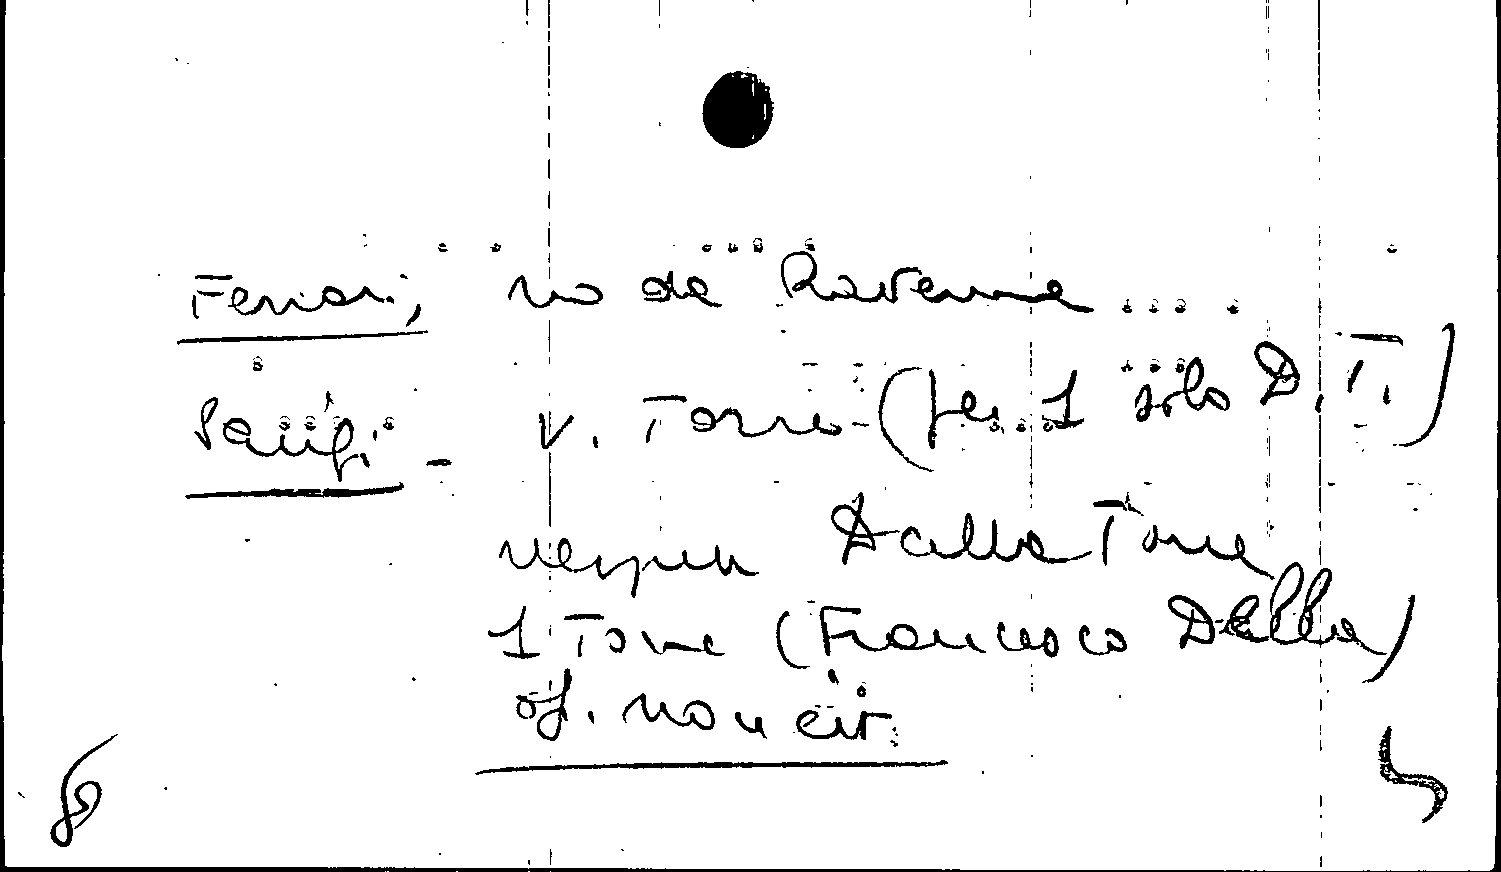 Ferrari, no da Ravenna
Sanfi - v. Torre (per 1 solo D.T.)
neppure Dalla Torre
1 Torre (Francesco Della)
of. non cit.